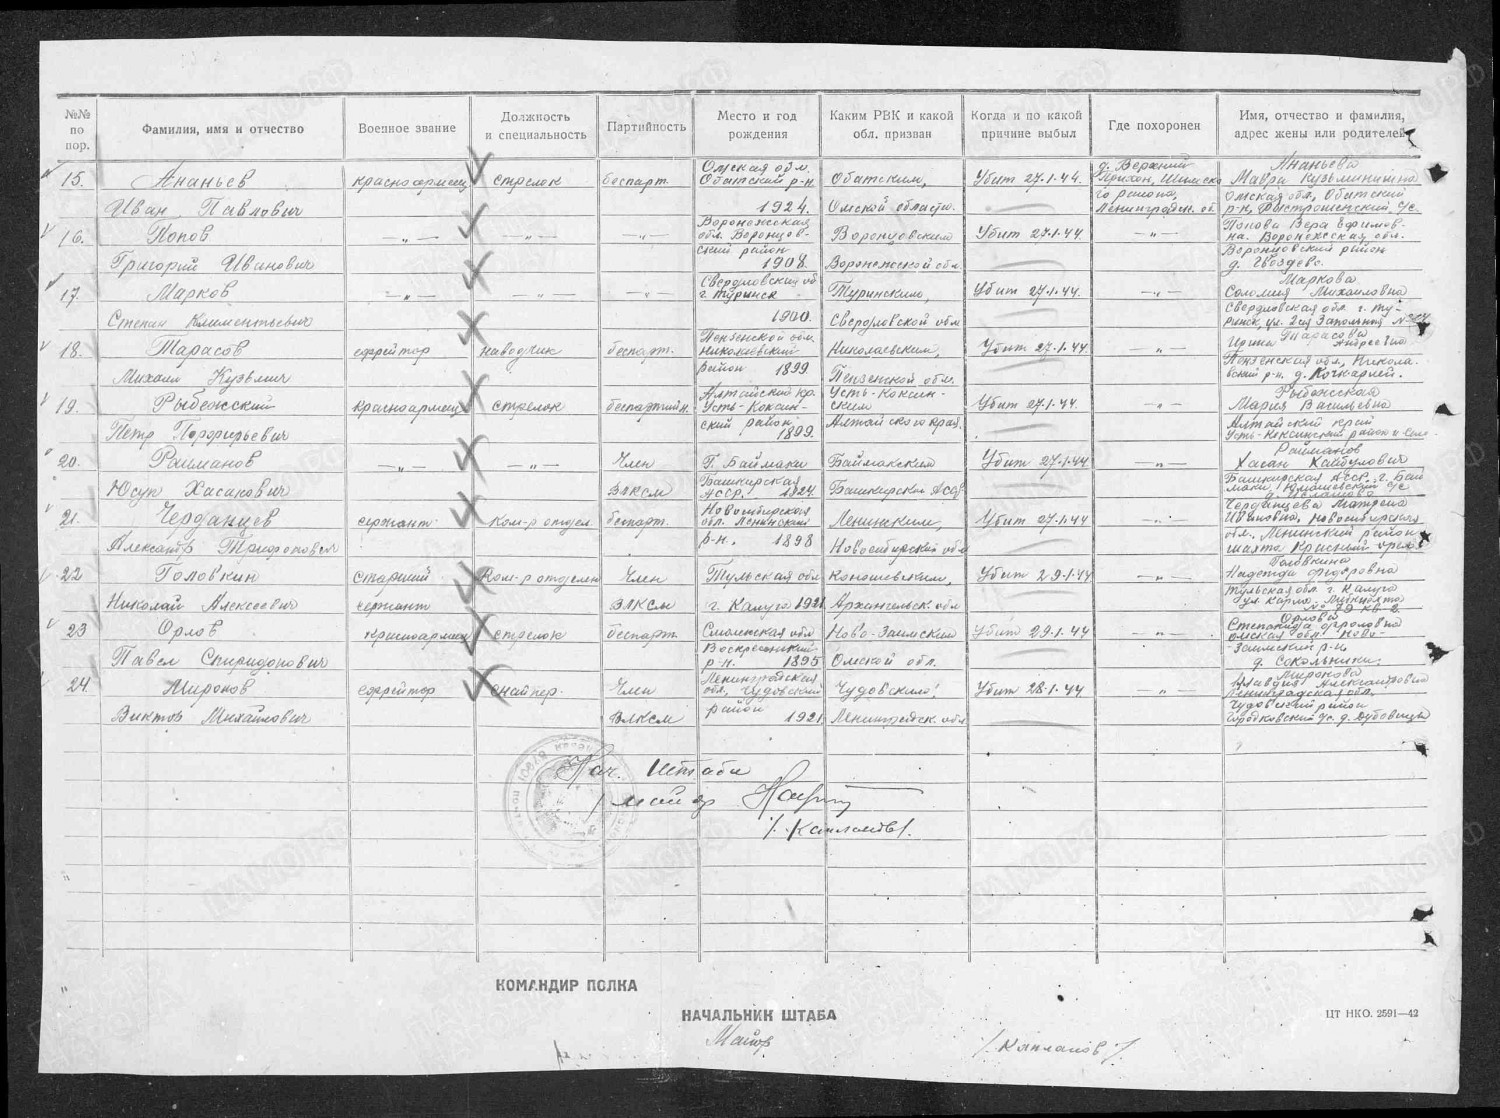 №№ по пор.
Фамилия, имя и отчество
Военное звание
Должность и специальность
Партийность
Место и год рождения
Каким РВК и какой обл. призван
Когда и по какой причине выбыл
Где похоронен
Имя, отчество и фамилия, адрес жены или родителей
15. Ананьев Иван Павлович
красноармеец
стрелок
беспарт.
Омская обл. Обатский р-н. 1924.
Обатским, Омской области.
Убит 27.1.44.
д. Верхний Шимско го района, Ленинградск. об.
Ананьева Мавра Кузьминична
Омская обл, Обатский р-н,
16. Попов Григорий Иванович
— „ —
— „ —
— „ —
Воронежская обл. Воронцов- ский район 1908.
Воронцовским Воронежской обл.
Убит 27.1.44.
— „ —
Попова Вера Ефимов- на. Воронежская обл. Воронцовский район д. Гвоздево.
17. Марков Степан Климентьевич
— „ —
— „ —
— „ —
Свердловская об г. Туринск 1900.
Туринским, Свердловской обл
Убит 27.1.44.
— „ —
Маркова Соломия Михаиловна
Свердловская обл. г. Ту- ринск, ул. 2ая Западная
18. Тарасов Михаил Кузьмич
ефрейтор
наводчик
беспарт.
Пензенской обл. Николаевский район 1899
Николаевским, Пензенской обл.
Убит 27.1.44.
— „ —
Тарасова Ирина Андреевна
Пензенская обл, Никола- вский р-н. д. Кочкарлей.
19. Рыбежский Петр Порфирьевич
красноармеец
стрелок
беспартийн.
Алтайский кр. Усть-Коксин- ский район 1899.
Усть-Коксин- ским Алтайского края
Убит 27.1.44.
— „ —
Рыбежская Мария Васильевна
Алтайский край Усть-Коксинский район и село.
20. Райманов Юсуп Хасанович
— „ —
— „ —
Член ВЛКСМ
Г. Баймаки Башкирская АССР. 1924.
Баймакским Башкирской АССР
Убит 27.1.44
— „ —
Райманов Хасан Хайбулович
Башкирская АССР. г. Бай маки,
21. Черданцев Александр Трифонович
сержант
ком-р отдел.
беспарт.
Новосибирская обл. Ленинский р-н. 1898
Ленинским, Новосибирской обл
Убит 27.1.44
— „ —
Черданцева Матрена Ивановна, Новосибирская обл. Ленинский район шахта Красный орел.
22 Головкин Николай Алексеевич
Старший сержант
Ком-р отделен
Член ВЛКСМ
Тульская обл г. Калуга 1921
Коношевским, Архангельск. обл
Убит 29.1.44
— „ —
Головкина Надежда Федоровна
Тульская обл. г. Калуга ул. Карла Либкнехта № 79 кв. 2.
23 Орлов Павел Спиридонович
красноармеец
стрелок
беспарт.
Смоленская обл Воскресенский р-н. 1895
Ново-Заимский Омской обл.
Убит 29.1.44
— „ —
Орлова Степанида Фроловна
Омская обл. Ново- -Заимский р-н д. Сокольники.
24. Миронов Виктор Михайлович
ефрейтор
снайпер.
Член ВЛКСМ
Ленинградская обл. Чудовский район 1921
Чудовским, Ленинградск. обл
Убит 28.1.44
— „ —
Миронова Клавдия Александровна
Ленинградская обл. Чудовский район с/с. д. Дубовицы
Нач. Штаба
/майор
/.Каплатов/.
КОМАНДИР ПОЛКА
НАЧАЛЬНИК ШТАБА
Майор
/.Каплапов/
ЦТ НКО. 2591—42